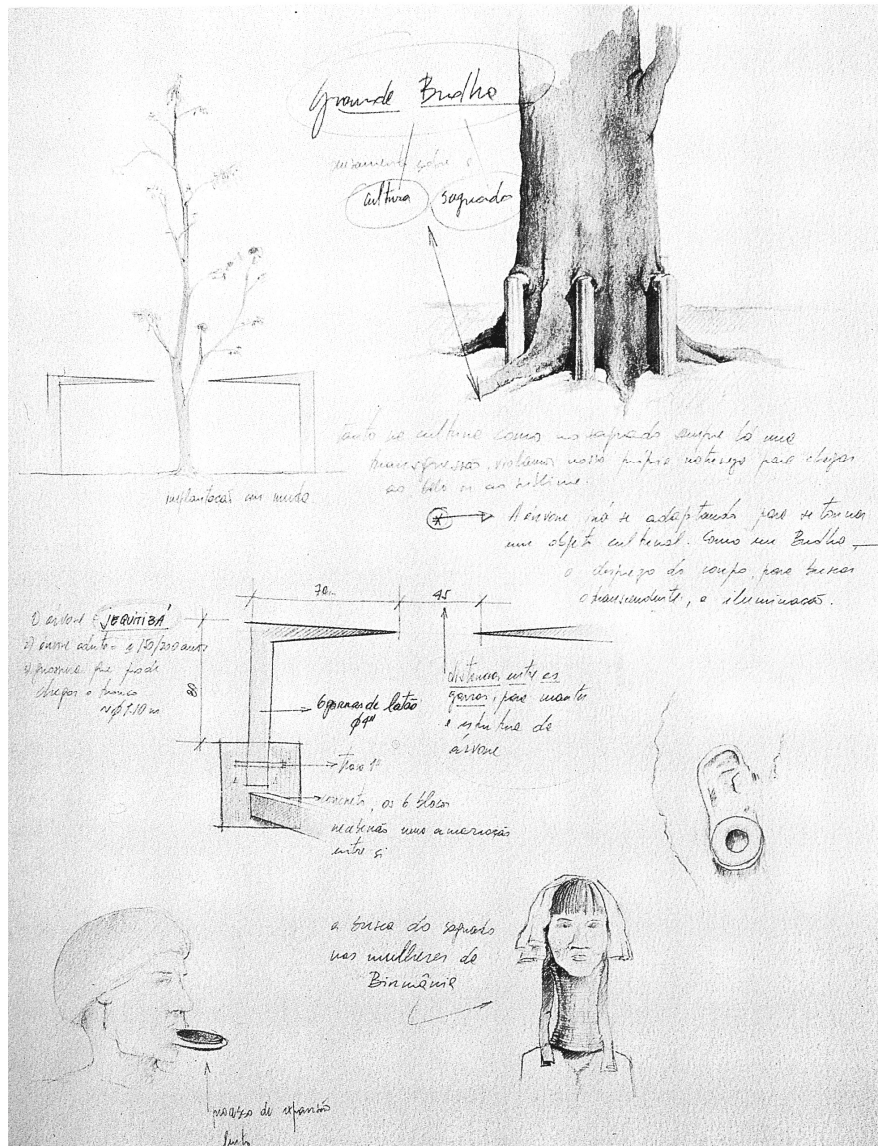 Grande Budha
pensamento sobre o
cultura sagrado
tanto na cultura como no sagrado sempre há uma
transgressão, violamos nossa própria natureza para chegar
ao belo ou ao sublime.
implantação em muda
* A árvore irá se adaptando para se tornar
um objeto cultural. Como um Budha,
o desprezo do corpo, para buscar
o transcendente, a iluminação.
70cm 45
1) árvore JEQUITIBÁ
2) árvore adulta 150/200 anos
3) grossura que pode
chegar o tronco
≈ φ 1.10 m
80
6 garras de latão
φ4"
distancia entre as
garras, para manter
a estrutura da
árvore
concreto, os 6 blocos
receberão uma amarração
entre si
a busca do sagrado
nas mulheres de
Birmânia
processo de expansão
lento